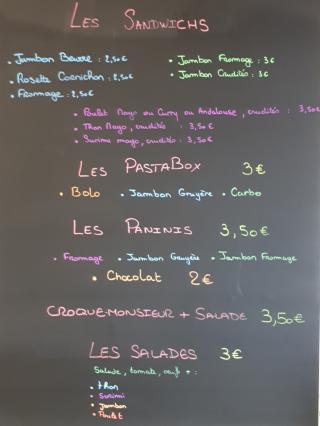 LES SANDWICHS
• Jambon Beurre : 2,50€
• Jambon Fromage : 3€
• Rosette Cornichon : 2,50€
• Jambon Crudités : 3€
• Fromage : 2,50€
• Poulet Mayo ou Curry ou Andalouse, crudités : 3,50€
• Thon Mayo, crudités : 3,50€
• Surimi mayo, crudités : 3,50€
LES PASTABOX 3€
• Bolo • Jambon Gruyère • Carbo
LES PANINIS 3,50€
• Fromage • Jambon Gruyère • Jambon Fromage
• Chocolat 2€
CROQUE-MONSIEUR + SALADE 3,50€
LES SALADES 3€
Salade, tomate, oeuf + :
• thon
• Surimi
• Jambon
• Poulet